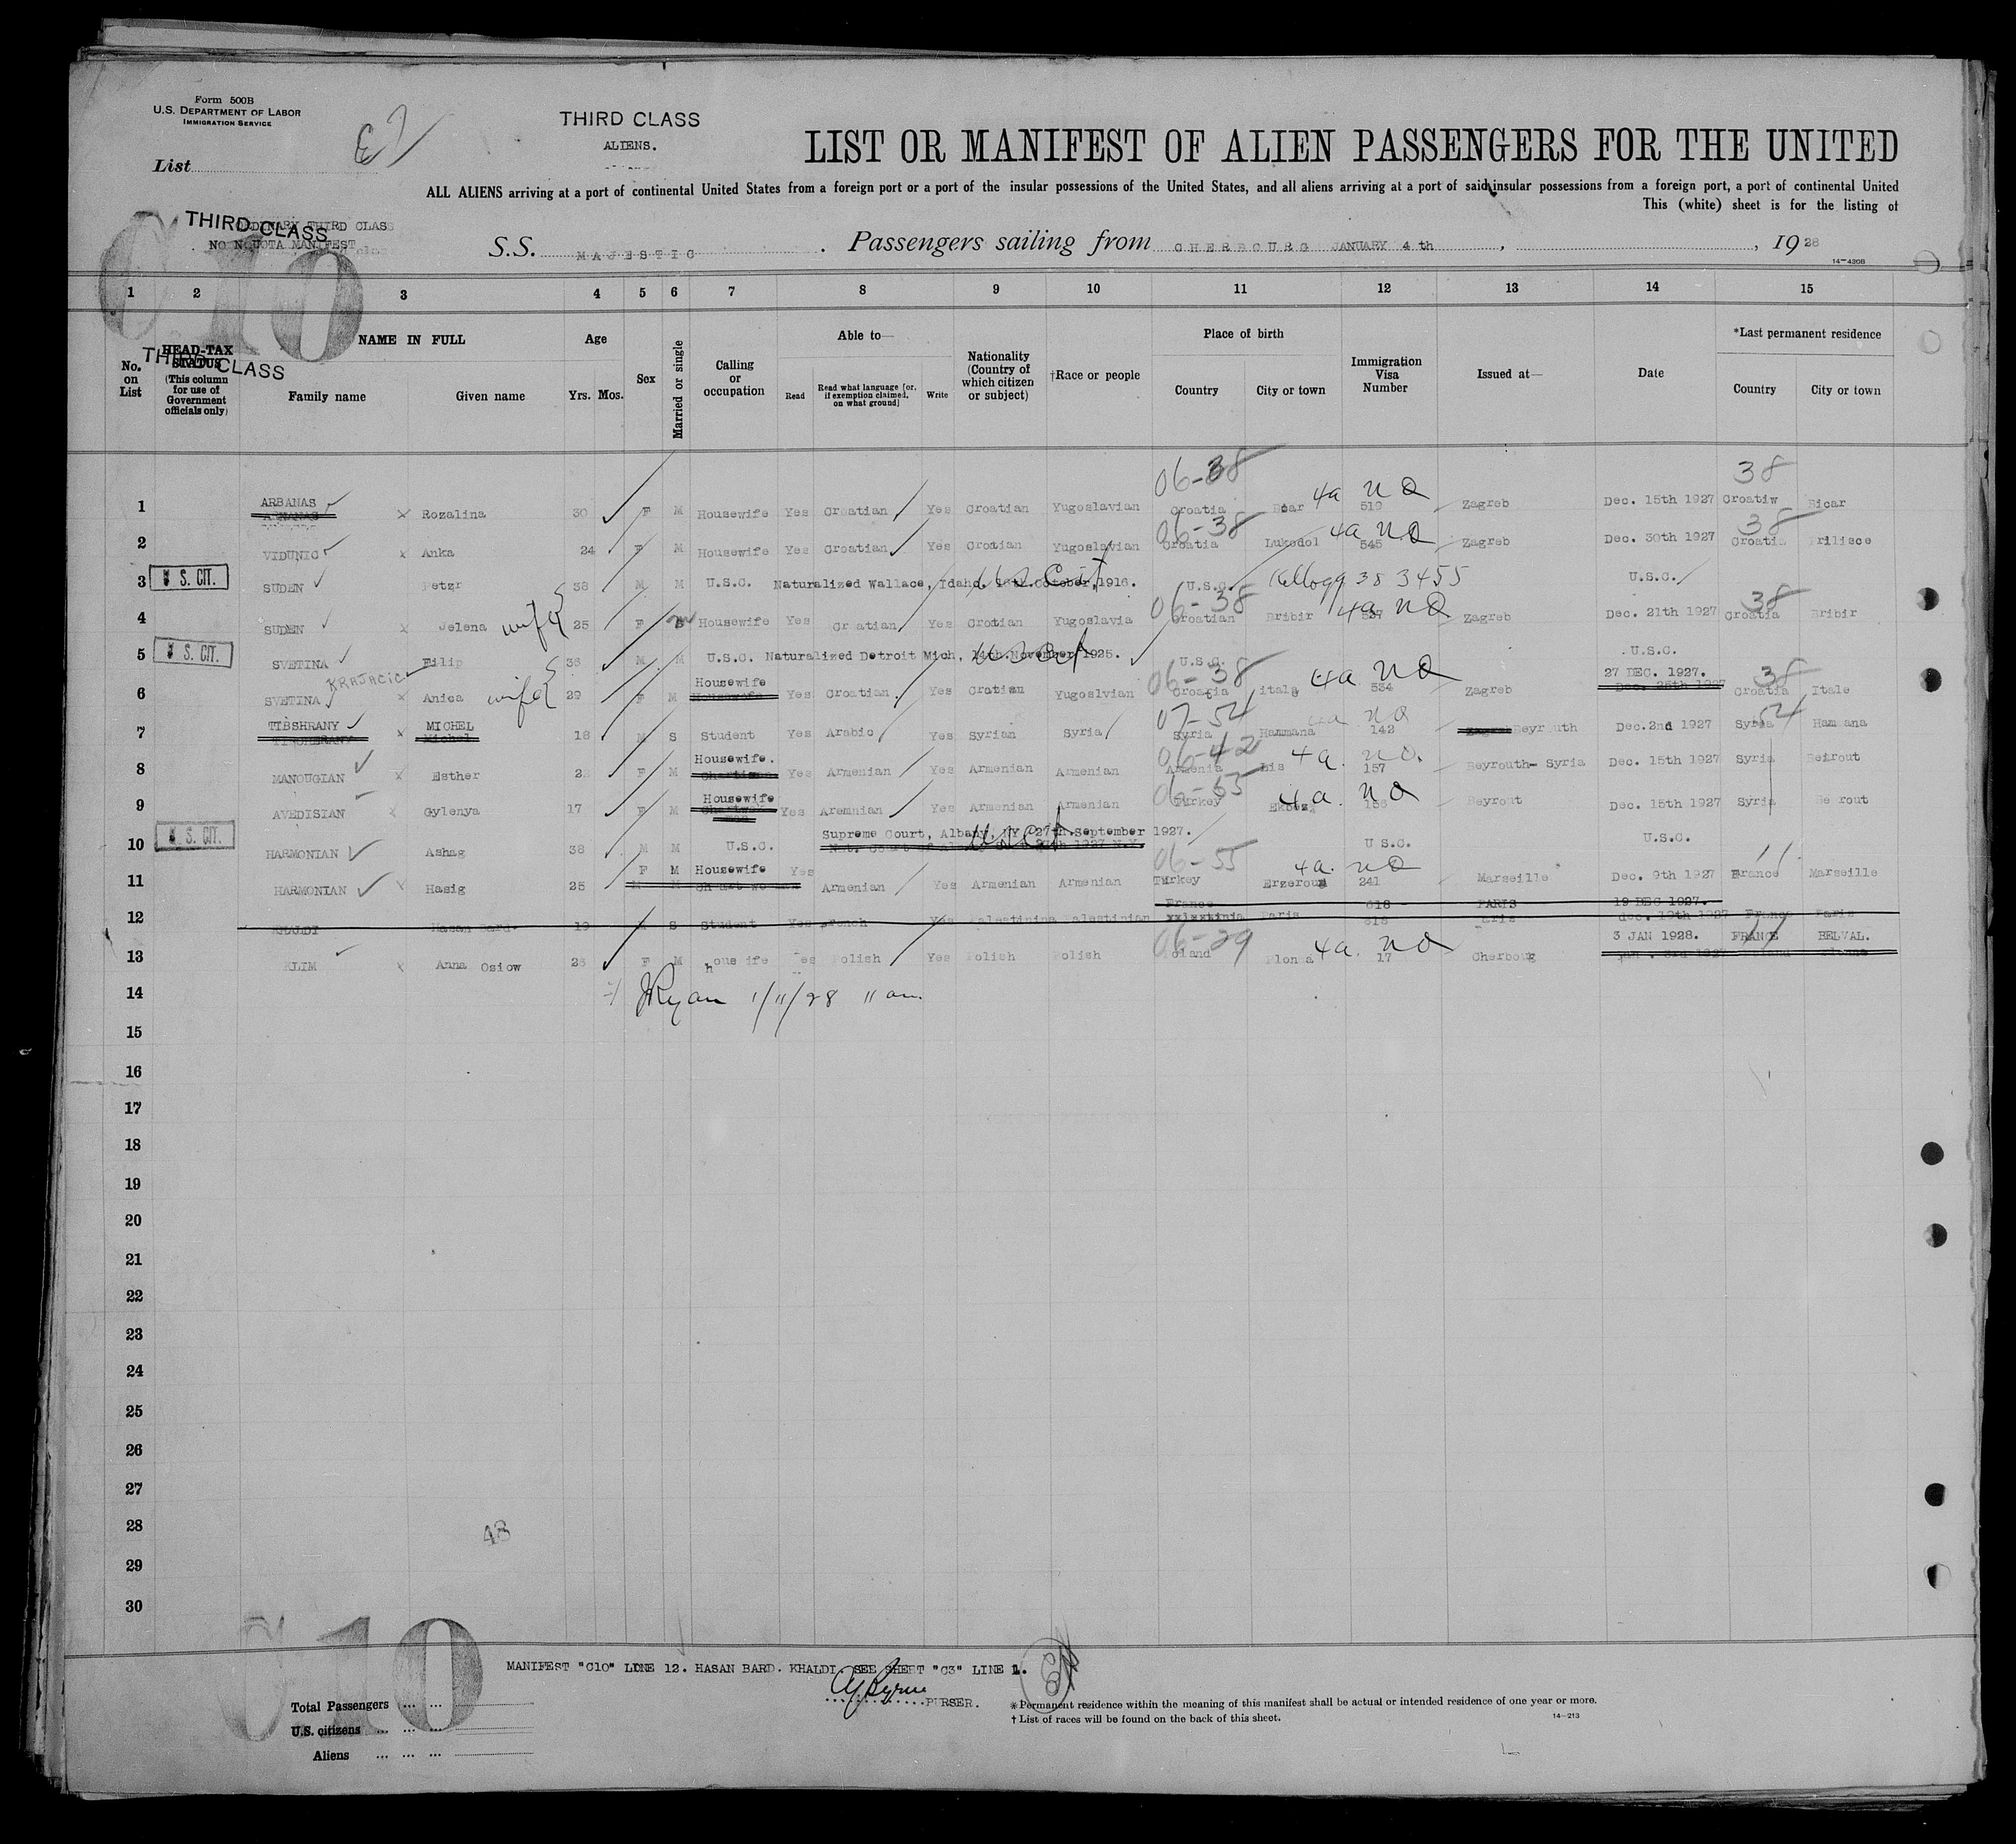 Form 500B
U.S. DEPARTMENT OF LABOR
IMMIGRATION SERVICE
List
THIRD CLASS
ALIENS.
LIST OR MANIFEST OF ALIEN PASSENGERS FOR THE UNITED
ALL ALIENS arriving at a port of continental United States from a foreign port or a port of the insular possessions of the United States, and all aliens arriving at a port of said insular possessions from a foreign port, a port of continental United
This (white) sheet is for the listing of
THIRD CLASS
THIRD CLASS
NO NQUOTA MANIFEST
C10
S.S. MAJESTIC. Passengers sailing from CHERBOURG JANUARY 4 th, , 1928
14-430B
1 2 3 4 5 6 7 8 9 10 11 12 13 14 15
No. on List
HEAD-TAX STATUS (This column for use of Government officials only)
THIRD CLASS
NAME IN FULL Family name Given name
Age Yrs. Mos.
Sex
Married or single
Calling or occupation
Able to— Read Read what language [or, if exemption claimed, on what ground] Write
Nationality (Country of which citizen or subject)
†Race or people
Place of birth Country City or town
Immigration Visa Number
Issued at—
Date
*Last permanent residence Country City or town
06-38 38
1 ARBANAS Rozalina 30 F M Housewife Yes Croatian Yes Croatian Yugoslavian Croatia 4a NQ 519 Zagreb Dec. 15th 1927 Croatiw Bicar
06-38 38
2 VIDUNIC Anka 24 F M Housewife Yes Croatian Yes Croatian Yugoslavian Croatia Lukodol 4a NQ 545 Zagreb Dec. 30th 1927 Croatia
3 U.S. CIT. SUDEN 38 M M U.S.C. Naturalized Wallace, Idaho, October, 1916. US Cit U.S.C. Kellogg 38 3455 U.S.C.
06-38 38
4 SUDEN Jelena wife 25 F M Housewife Yes Croatian Yes Crotian Yugoslavia Croatian Bribir 4a NQ 537 Zagreb Dec. 21th 1927 Croatia Bribir
5 U.S. CIT. SVETINA Filip 36 M M U.S.C. Naturalized Detroit Mich, 14th November 1925. US Cit U.S.C. U.S.C.
KRAJACIC 06-38 27 DEC. 1927. 38
6 SVETINA Anica wife 29 F M Housewife Yes Croatian Yes Yugoslvian Croatia 4a NQ 534 Zagreb Croatia Itale
07-54 54
7 TIBSHRANY MICHEL 18 M S Student Yes Arabic Yes Syrian Syria Syria Hammana 4a NQ 142 Beyrouth Dec.2nd 1927 Syria Hammana
06-42
8 MANOUGIAN Esther F M Housewife. Yes Armenian Yes Armenian Armenian Armenia 4a. NQ. 157 Beyrouth- Syria Dec. 15th 1927 Syria Beirout
06-55
9 AVEDISIAN Gylenya 17 F M Housewife Yes Aremnian Yes Armenian Armenian Turkey 4a. NQ Beyrout Dec. 15th 1927 Syria Beirout
10 U.S. CIT. HARMONIAN Ashag 38 M M U.S.C. Supreme Court, Albany, NY 27th September 1927. US Cit U S.C. U.S.C.
06-55 11
11 HARMONIAN Hasig 25 F M Housewife Yes Armenian Yes Armenian Armenian Turkey Erzeroum 4a. NQ 241 Marseille Dec. 9th 1927 France Marseille
France 618 PARIS 19 DEC 1927.
12 KHALDI Hasan Bard. 19 M S Student Yes French Yes Palestinian Paris 618 Paris dec. 19th 1927 France Paris
06-29 3 JAN 1928. FRANCE BELVAL.
13 KLIM Anna Osiow F M housewife Yes Polish Yes Polish Polish Poland 4a. NQ 17 Cherboug
14 JRyan 1/11/28 11 am.
15
16
17
18
19
20
21
22
23
24
25
26
27
28
29
30
48
C10
MANIFEST "C10" LINE 12. HASAN BARD. KHALDI. SEE SHEET "C3" LINE 1.
PURSER.
Total Passengers
U.S. citizens
Aliens
*Permanent residence within the meaning of this manifest shall be actual or intended residence of one year or more.
†List of races will be found on the back of this sheet.
14-213